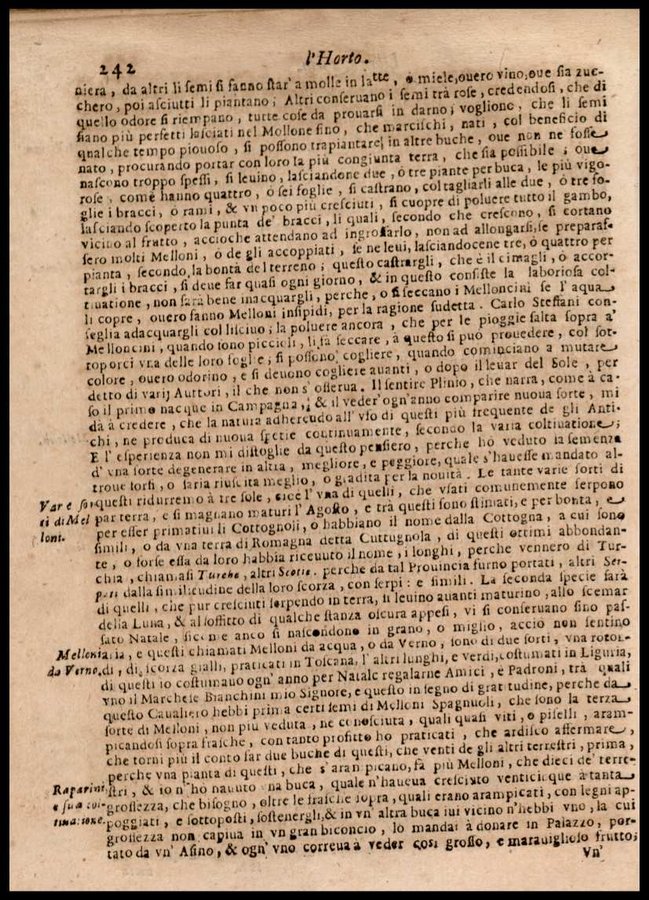 242
l'Horto.
niera, da altri li semi si fanno star' a molle in latte, o miele, ouero vino, oue sia zuc-
chero, poi asciutti li piantano; Altri conseruano i semi trà rose, credendosi, che di
quello odore si riempano, tutte cose da prouarsi in darno; vogliono, che li semi
siano più perfetti lasciati nel Mellone sino, che marcischi, nati, col beneficio di
qualche tempo piouoso, si possono trapiantare in altre buche, oue non ne fosse
nato, procurando portar con loro la più congiunta terra, che sia possibile; oue
nascono troppo spessi, si leuino, lasciandone due, ò tre piante per buca, le più vigo-
rose, come hanno quattro, ò sei foglie, si castrano, col tagliarli alle due, ò tre fo-
glie i bracci, ò rami, & vn poco più cresciuti, si cuopre di poluere tutto il gambo,
lasciando scoperto la punta de' bracci, li quali, secondo che crescono, si cortano
vicino al frutto, accioche attendano ad ingrossarlo, non ad allongarsi, se preparas-
sero molti Melloni, ò de gli accoppiati, se ne leui, lasciandocene tre, ò quattro per
pianta, secondo, la bontà del terreno; questo castrargli, che è il cimagli, ò accor-
targli i bracci, si deue far quasi ogni giorno, & in questo consiste la laboriosa col-
tiuatione, non sarà bene inacquargli, perche, o si seccano i Melloncini se l' aqua
li copre, ouero fanno Melloni insipidi, per la ragione sudetta. Carlo Steffani con-
seglia adacquargli col lisciuo; la poluere ancora, che per le pioggie salta sopra a'
Melloncini, quando sono piccioli, li fà seccare, a questo si può prouedere, col sot-
toporci vna delle loro foglie; si possono cogliere, quando cominciano a mutare
colore, ouero odorino, e si deuono cogliere auanti, o dopo il leuar del Sole, per
detto di varij Auttori, il che non s' osserua. Il sentire Plinio, che narra, come à ca-
so il primo nacque in Campagna, & il veder' ogn' anno comparire nuoua sorte, mi
dà à credere, che la natura adherendo all' vso di questi più frequente de gli Anti-
chi, ne produca di nuoua spetie continuamente, secondo la varia coltiuatione;
E l' esperienza non mi distoglie da questo pensiero, perche hò veduto la semenza
d' vna sorte degenerare in altra, megliore, e peggiore, quale s' hauesse mandato al-
troue sorsi, o saria riuscita meglio, o gradita per la nouità. Le tante varie sorti di
Varie sor questi ridurremo à tre sole, cioè l' vna di quelli, che vsati comunemente serpono
ti di Mel par terra, e si magnano maturi l' Agosto, e trà questi sono stimati, e per bontà, e
loni. per esser primatiui li Cottognoli, o habbiano il nome dalla Cottogna, a cui sono
simili, o da vna terra di Romagna detta Cuttugnola, di questi ottimi abbondan-
te, o forse essa da loro habbia riceuuto il nome, i longhi, perche vennero di Tur-
chia, chiamasi Turche, altri Scotie. perche da tal Prouincia furno portati, altri Ser-
pati dalla similitudine della loro scorza, con serpi: e simili. La seconda specie sarà
di quelli, che pur cresciuti serpendo in terra, si leuino auanti maturino, allo scemar
della Luna, & al soffitto di qualche stanza oscura appesi, vi si conseruano fino pas-
sato Natale, sicome anco si nascondono in grano, o miglio, acciò non sentino
Melloni aria, e questi chiamati Melloni da acqua, o da Verno, sono di due sorti, vna roton-
da Verno, di, di scorza gialli, praticati in Toscana, l' altri lunghi, e verdi, costumati in Liguria,
di questi io costumauo ogn' anno per Natale regalarne Amici, e Padroni, trà quali
vno il Marchese Bianchini mio Signore, e questo in segno di gratitudine, perche da
questo Caualiero hebbi prima certi semi di Melloni Spagnuoli, che sono la terza
sorte di Melloni, non più veduta, ne conosciuta, quali quasi viti, o piselli, aram-
picandosi sopra frasche, con tanto profitto ho praticati, che ardisco affermare,
che torni più il conto far due buche di questi, che venti de gli altri terrestri, prima,
perche vna pianta di questi, che s' arampicano, fà più Melloni, che dieci de' terre-
Raparini stri, & io n' ho hauuto vna buca, quale n' haueua cresciuto venticinque à tanta
e sua col- grossezza, che bisogno, oltre le frasche sopra, quali erano arampicati, con legni ap-
tiuatione. poggiati, e sottoposti, sostenergli, & in vn' altra buca iui vicino n' hebbi vno, la cui
grossezza non capiua in vn gran biconcio, lo mandai à donare in Palazzo, por-
tato da vn' Asino, & ogn' vno correua à veder così grosso, e marauiglioso frutto;
Vn'